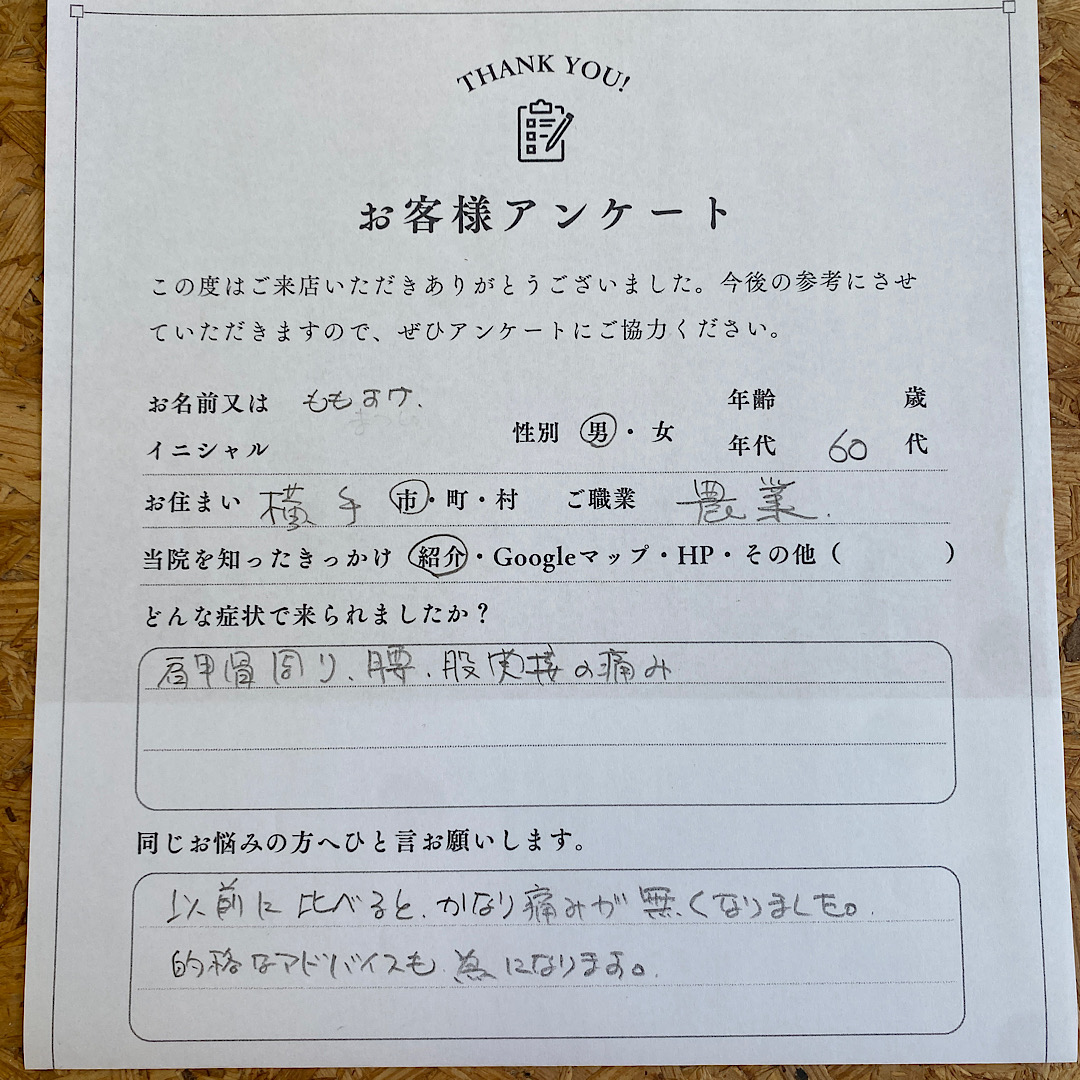 THANK YOU!
お客様アンケート
この度はご来店いただきありがとうございました。今後の参考にさせ
ていただきますので、ぜひアンケートにご協力ください。
お名前又は ももすけ.
イニシャル
性別 男・女
年齢 歳
年代 60 代
お住まい 横手 市・町・村 ご職業 農業.
当院を知ったきっかけ 紹介・Googleマップ・HP・その他（ ）
どんな症状で来られましたか？
肩甲骨周り、腰、股関接の痛み
同じお悩みの方へひと言お願いします。
以前に比べると、かなり痛みが無くなりました。
的格なアドバイスも為になります。